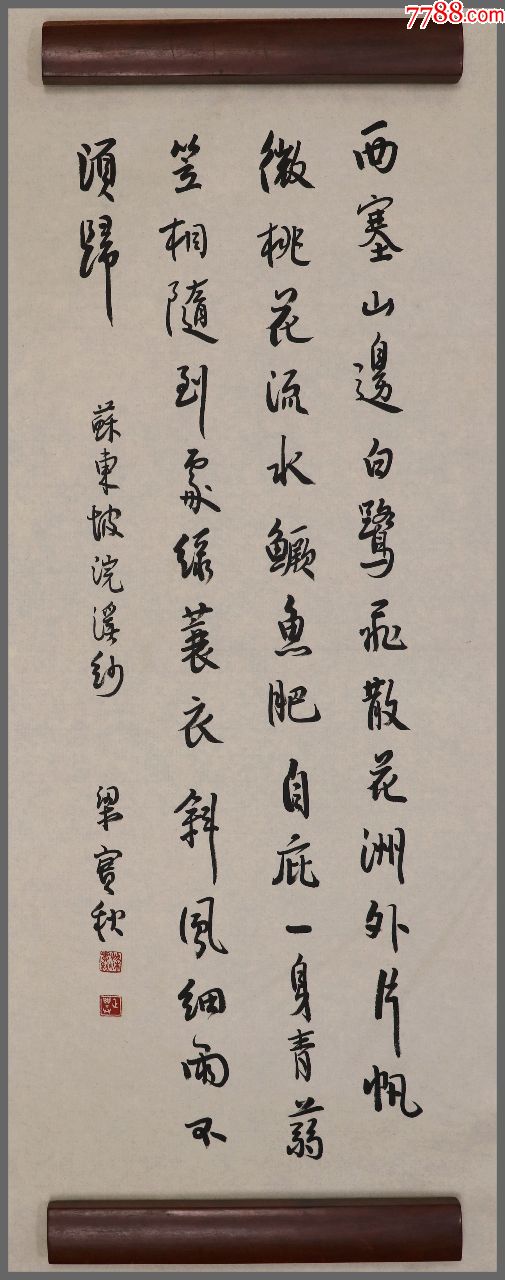 7788.com
西塞山邊白鷺飛散花洲外片帆
微桃花流水鱖魚肥自庇一身青蒻
笠相隨到處綠蓑衣斜風細雨不
須歸
蘇東坡浣溪紗
梁實秋